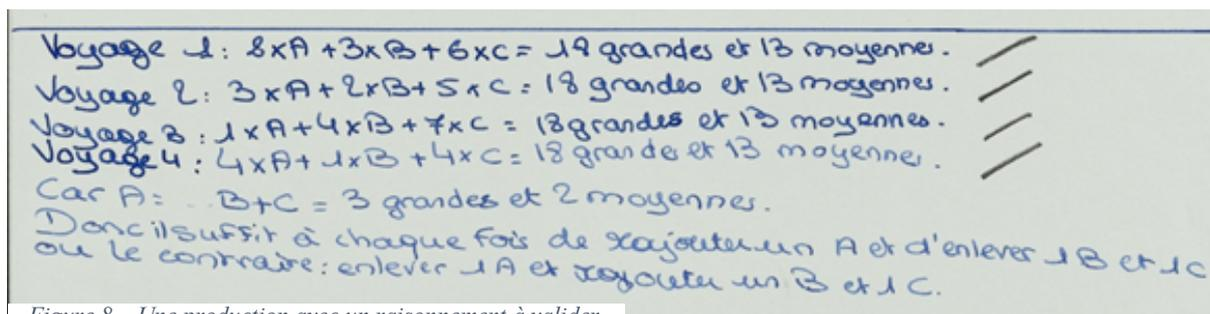 Voyage 1 : 2xA + 3xB + 6xC = 18 grandes et 13 moyennes.
Voyage 2 : 3xA + 2xB + 5xC = 18 grandes et 13 moyennes.
Voyage 3 : 1xA + 4xB + 7xC = 18 grandes et 13 moyennes.
Voyage 4 : 4xA + 1xB + 4xC = 18 grandes et 13 moyennes.
Car A = B+C = 3 grandes et 2 moyennes.
Donc il suffit à chaque fois de rajouter un A et d'enlever 1B et 1C
ou le contraire : enlever 1A et rajouter un B et 1 C.
Figure 8 – Une production avec un raisonnement à valider